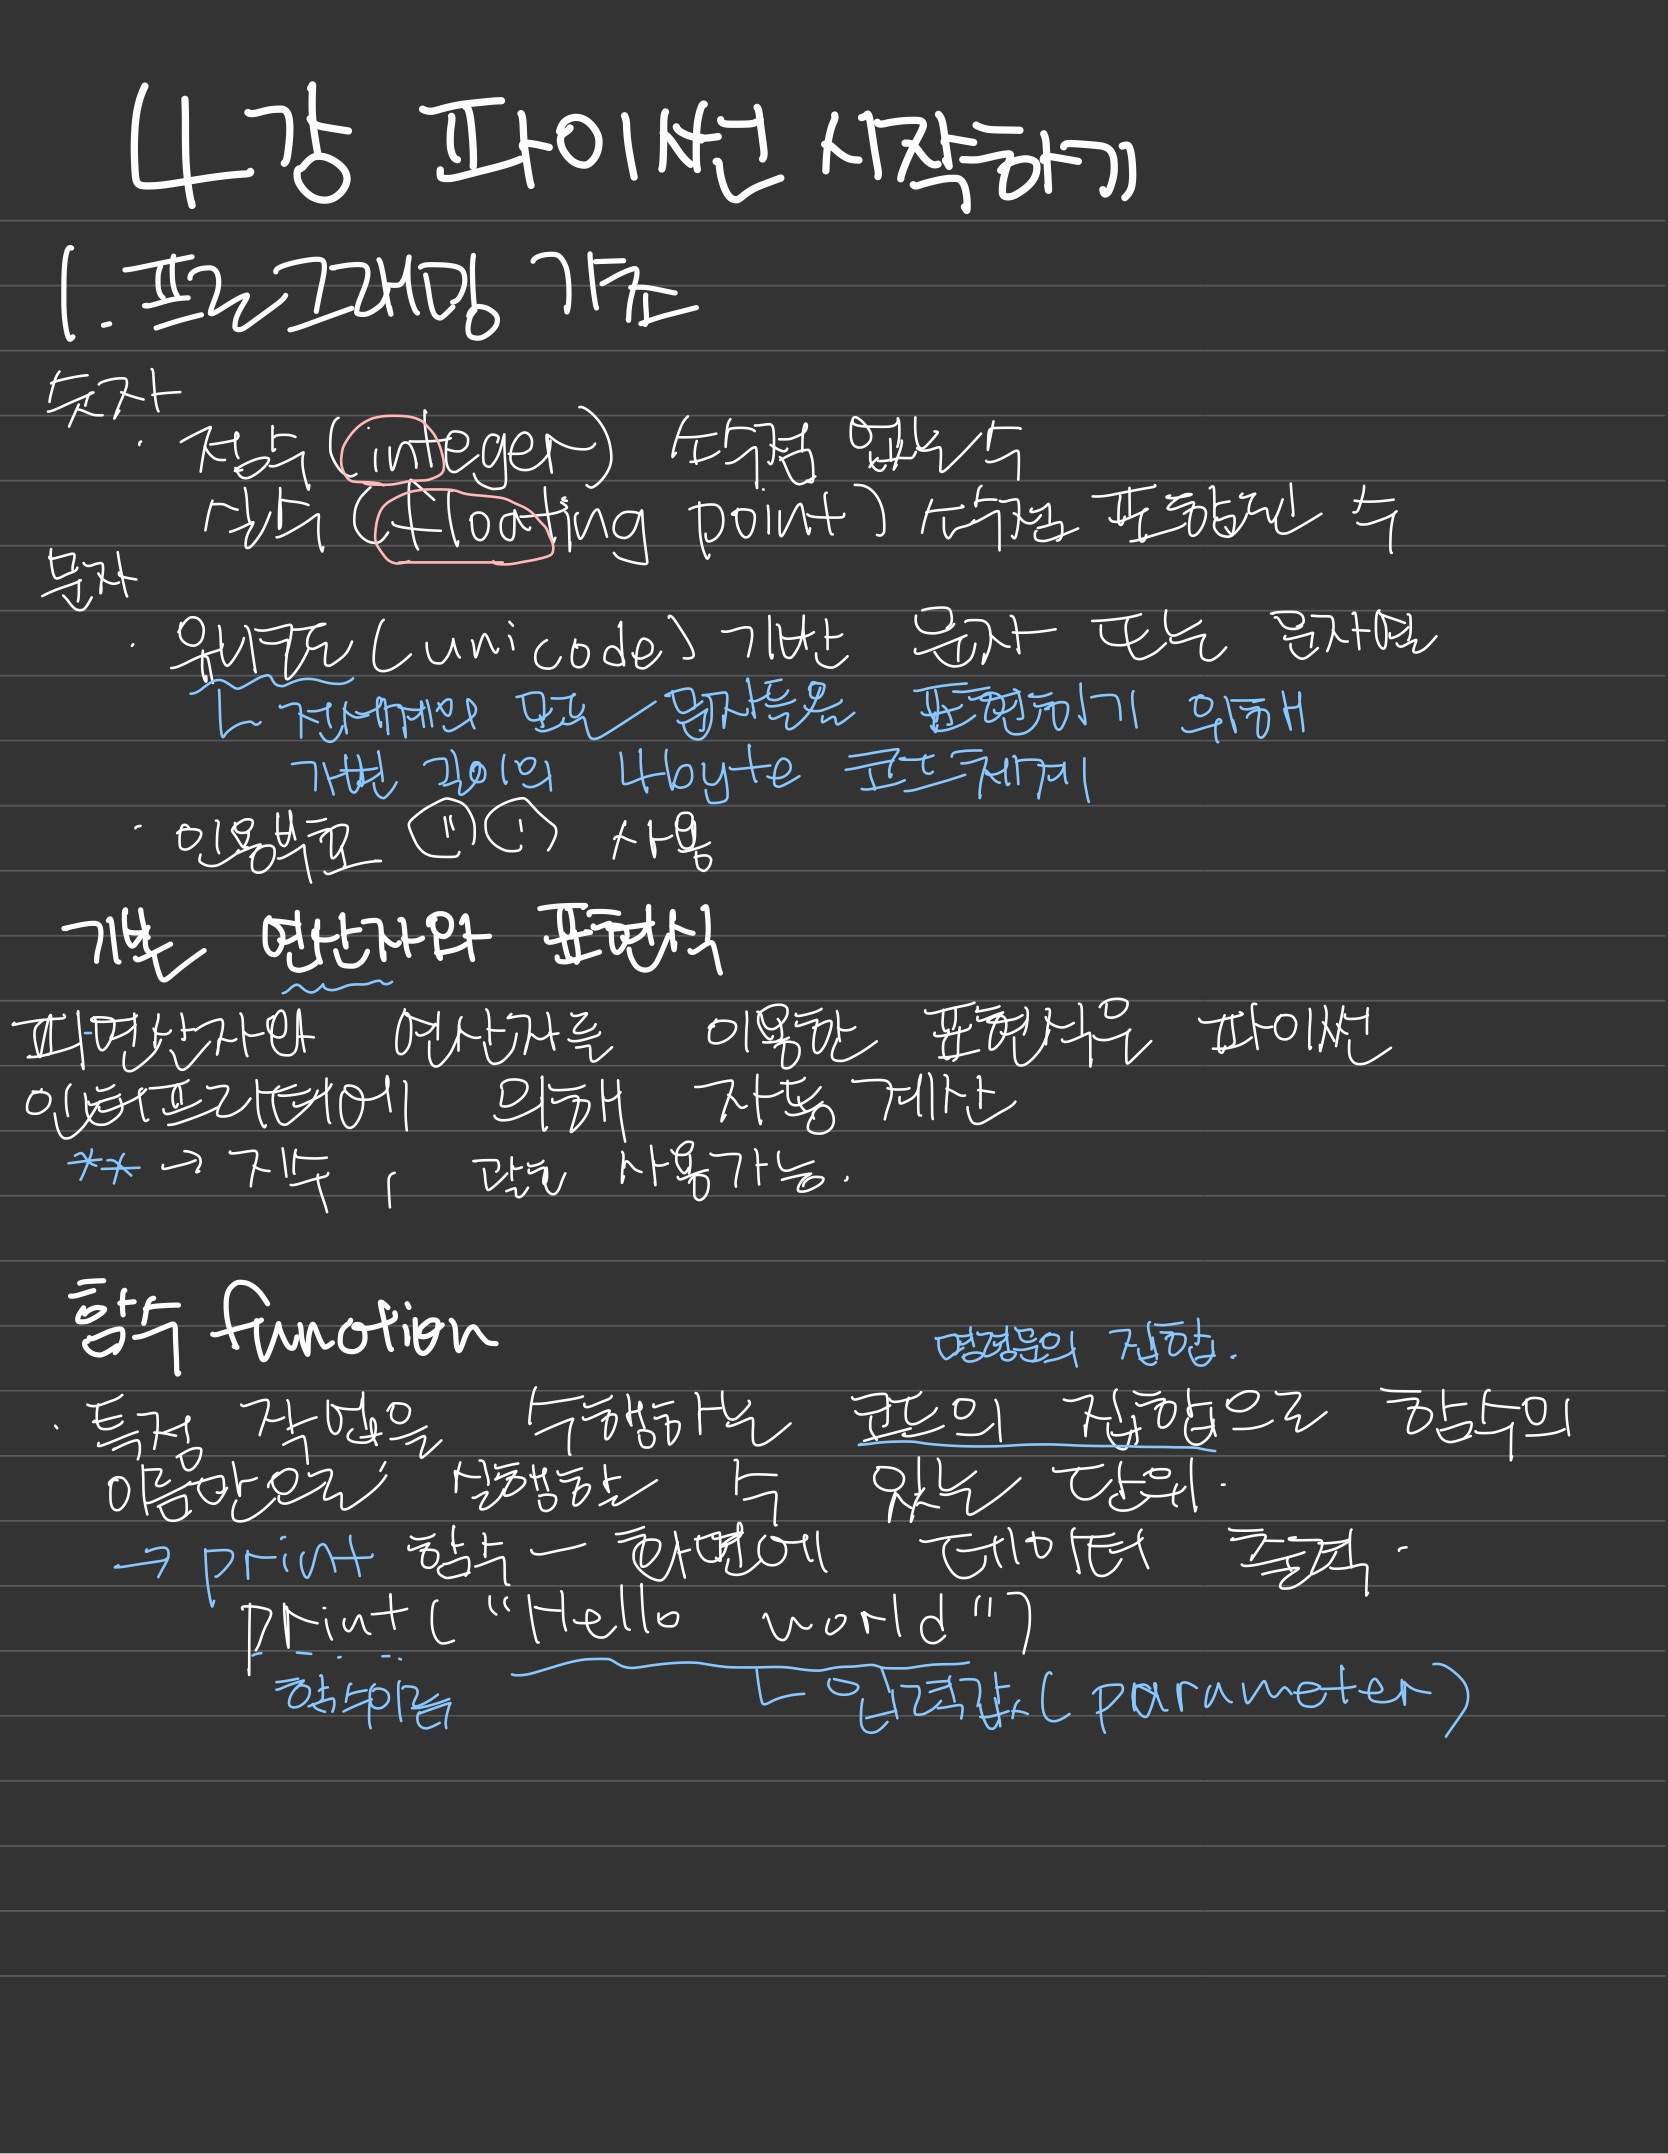 4강 파이썬 시작하기
1. 프로그래밍 기초
숫자
· 정수 (integer) 소숫점 없는 수
실수 (floating point) 소숫점 포함된 수
문자
· 유니코드 (unicode) 기반 문자 또는 문자열
ㄴ 전세계의 모든 문자들을 표현하기 위해
가변 길이의 4byte 코드체계
· 인용부호 (") (') 사용
기본 연산자와 표현식
피연산자와 연산자를 이용한 표현식은 파이썬
인터프리터에 의해 자동 계산
** → 지수, 괄호 사용가능.
함수 function
명령문의 집합.
· 특정 작업을 수행하는 코드의 집합으로 함수의
이름만으로 실행할 수 있는 단위.
→ print 함수 - 화면에 데이터 출력.
print("Hello world")
함수이름 ㄴ 입력값(parameter)